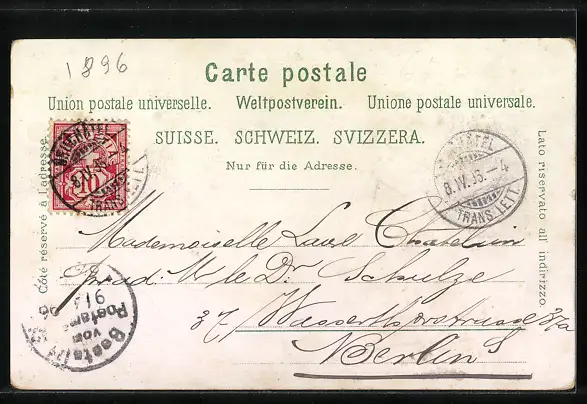 1896
Carte postale
Union postale universelle. Weltpostverein. Unione postale universale.
SUISSE. SCHWEIZ. SVIZZERA.
Nur für die Adresse.
Côté réservé à l'adresse.
Lato riservato all' indirizzo.
10
TRANS. LETT.
8. IV. 96 – 4
TRANS. LETT.
Mademoiselle Laure Chatelain
le Dr Schulze
37,
Berlin S
Bestellt
vom
Postamte